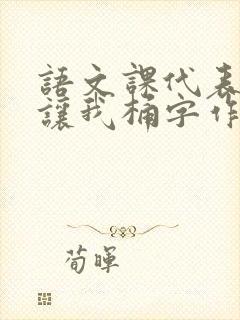 語文課代表
讓我桶字作
荀暉